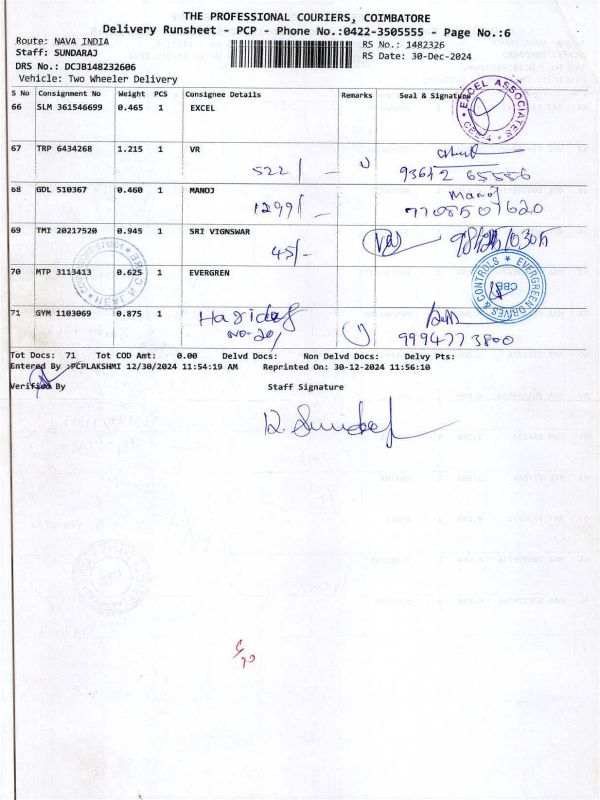 THE PROFESSIONAL COURIERS, COIMBATORE
Delivery Runsheet - PCP - Phone No.:0422-3505555 - Page No.:6
Route: NAVA INDIA
RS No.: 1482326
Staff: SUNDARAJ
RS Date: 30-Dec-2024
DRS No.: DCJB148232606
Vehicle: Two Wheeler Delivery
S No Consignment No Weight PCS Consignee Details Remarks Seal & Signature
66 SLM 361546699 0.465 1 EXCEL
EXCEL ASSOCIATES
67 TRP 6434268 1.215 1 VR
522/- 93612 65556
68 GDL 510367 0.460 1 MANOJ Manoj
1299/-
69 TMI 20217520 0.945 1 SRI VIGNSWAR
45/-
70 MTP 3113413 0.625 1 EVERGREN
EVERGREEN DRIVES & CONTROLS
CBE
71 GYM 1103069 0.875 1
NO-20, 9994773800
Tot Docs: 71 Tot COD Amt: 0.00 Delvd Docs: Non Delvd Docs: Delvy Pts:
Entered By :PCPLAKSHMI 12/30/2024 11:54:19 AM Reprinted On: 30-12-2024 11:56:10
Verified By Staff Signature